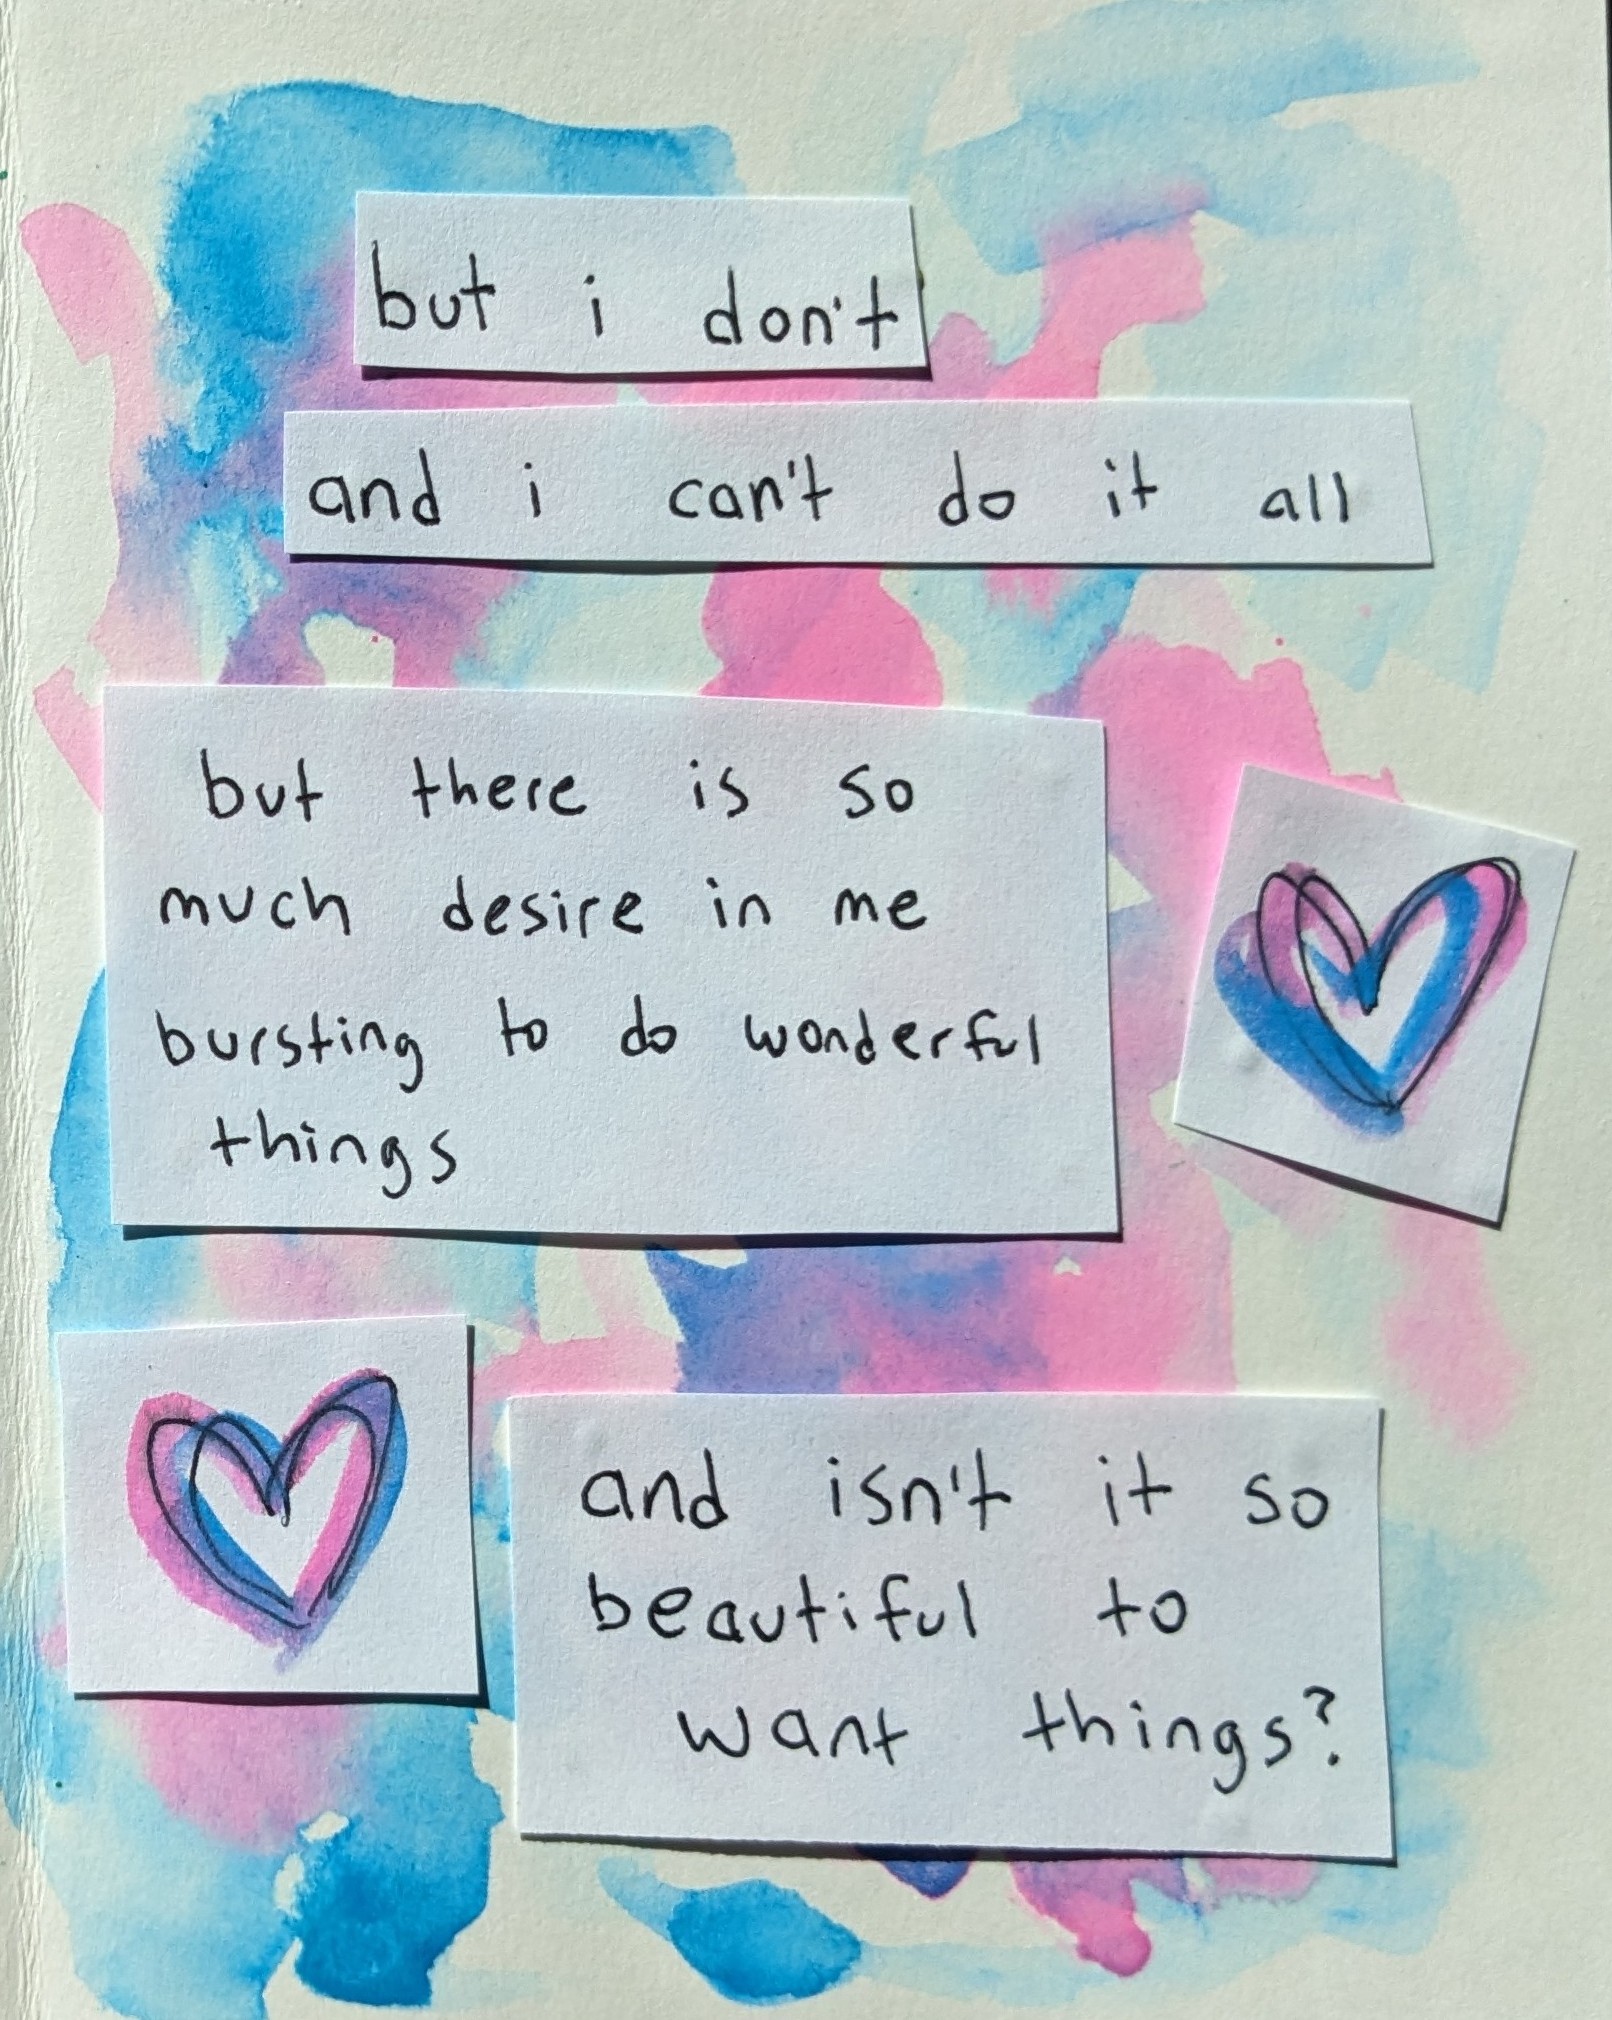 but i don't
and i can't do it all
but there is so
much desire in me
bursting to do wonderful
things
and isn't it so
beautiful to
want things?